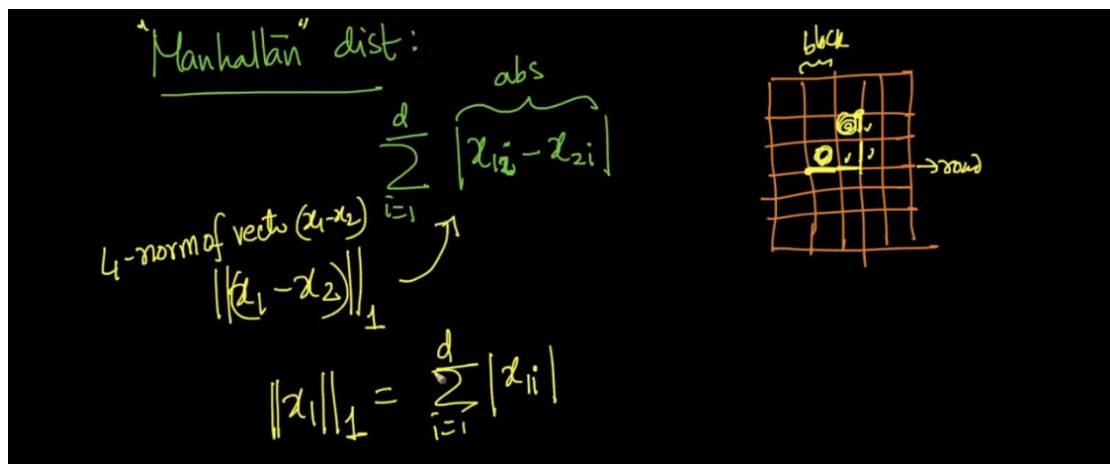 "Manhattan" dist:
abs
d
∑ |x₁ᵢ - x₂ᵢ|
i=1
L₁-norm of vecto (x₁-x₂)
||(x₁ - x₂)||₁
d
||x₁||₁ = ∑ |x₁ᵢ|
i=1
block
→road